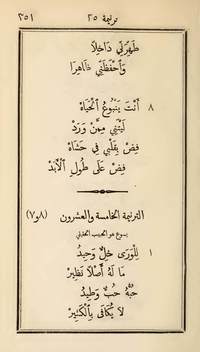 ترنيمة ٢٥
٢٥١
طَهِّرَنِّي دَاخِلًا
وَٱحْفَظَنِّي ظَاهِرَا
٨ أَنْتَ يَنْبُوعُ ٱلْحَيَاهْ
لَيْتَنِي مِمَّنْ وَرَدْ
فِضْ بِقَلْبِي فِي حَشَاهْ
فِضْ عَلَى طُولِ ٱلْأَبَدْ
الترنيمة الخامسة والعشرون (٨و٧)
يسوع هو الحبيب
١ لِلْوَرَى خِلٌّ وَحِيدُ
مَا لَهُ أَصْلًا نَظِيرْ
حُبُّهُ حُبٌّ وَطِيدُ
لَا يُكَافَى بِٱلْكَثِيرْ